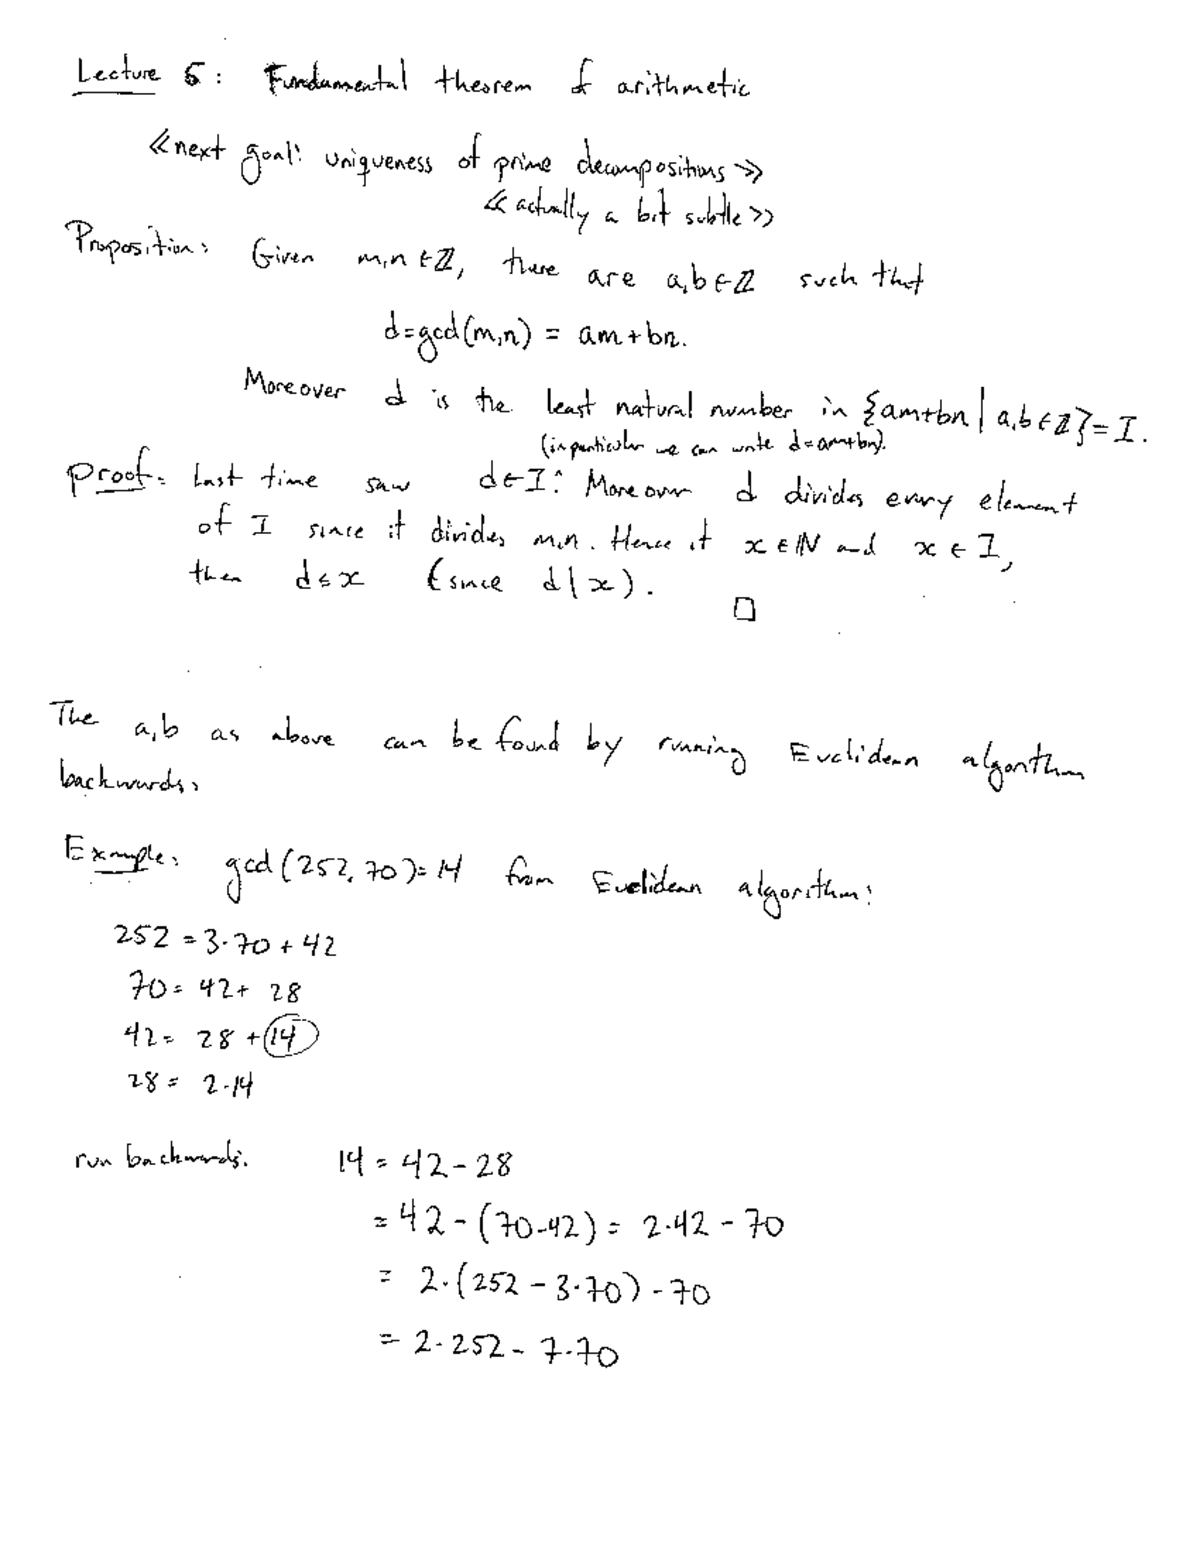 Lecture 5: Fundamental theorem of arithmetic
≪next goal: uniqueness of prime decompositions≫
≪actually a bit subtle≫
Proposition: Given m,n ∈ ℤ, there are a,b ∈ ℤ such that
d = gcd(m,n) = am + bn.
Moreover d is the least natural number in {am+bn | a,b ∈ ℤ} = I.
(in particular we can write d = am+bn).
Proof: Last time saw d ∈ I. Moreover d divides every element
of I since it divides m,n. Hence if x ∈ ℕ and x ∈ I,
then d ≤ x (since d | x).
□
The a,b as above can be found by running Euclidean algorithm
backwards:
Example: gcd(252, 70) = 14 from Euclidean algorithm:
252 = 3·70 + 42
70 = 42 + 28
42 = 28 + 14
28 = 2·14
run backwards: 14 = 42 - 28
= 42 - (70-42) = 2·42 - 70
= 2·(252 - 3·70) - 70
= 2·252 - 7·70